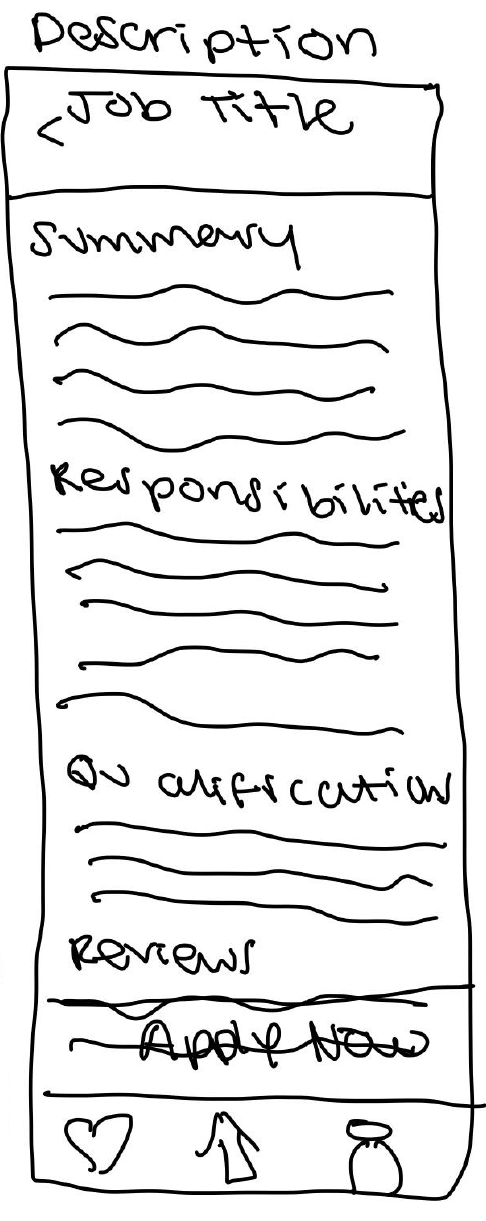 Description
< Job Title
Summary
Responsibilites
Qualification
Reviews
Apply Now